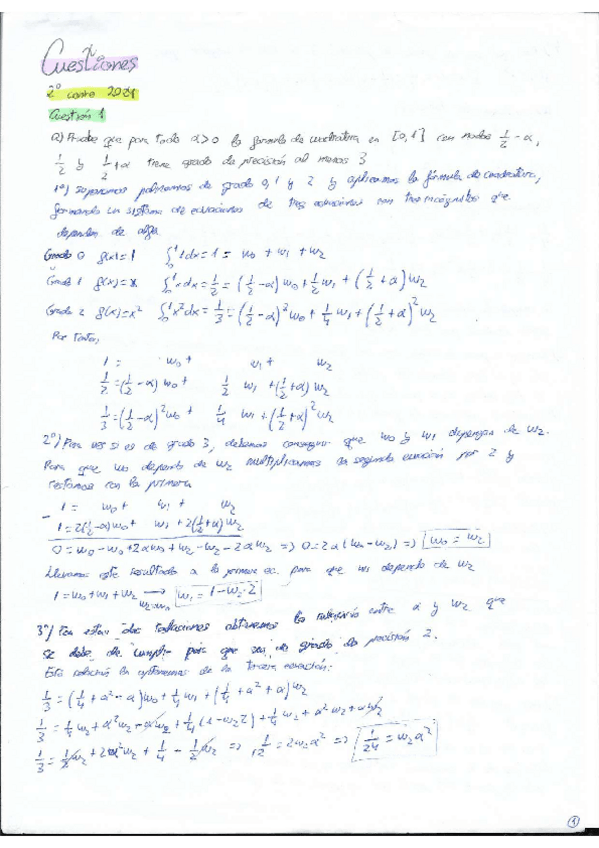 Cuestiones
2º control 2021
Cuestión 1
a) Pruebe que para todo α>0 la fórmula de cuadratura en [0,1] con nodos 1/2-α,
1/2 y 1/2+α tiene grado de precisión al menos 3
1º) Separamos polinomios de grado 0, 1 y 2 y aplicamos la fórmula de cuadratura,
formando un sistema de ecuaciones de tres ecuaciones con tres incógnitas que
dependen de alfa
Grado 0 f(x)=1 ∫₀¹ 1dx = 1 = w₀ + w₁ + w₂
Grado 1 f(x)=x ∫₀¹ x dx = 1/2 = (1/2-α)w₀ + 1/2 w₁ + (1/2+α)w₂
Grado 2 f(x)=x² ∫₀¹ x²dx = 1/3 = (1/2-α)²w₀ + 1/4 w₁ + (1/2+α)²w₂
Por tanto,
1 = w₀ + w₁ + w₂
1/2 = (1/2-α) w₀ + 1/2 w₁ + (1/2+α) w₂
1/3 = (1/2-α)² w₀ + 1/4 w₁ + (1/2+α)² w₂
2º) Para ver si es de grado 3, debemos conseguir que w₀ y w₁ dependan de w₂.
Para que w₀ dependa de w₂ multiplicamos la segunda ecuación por 2 y
restamos con la primera
1 = w₀ + w₁ + w₂
- 1 = 2(1/2-α)w₀ + w₁ + 2(1/2+α)w₂
0 = w₀ - w₀ + 2αw₀ + w₂ - w₂ - 2αw₂ => 0 = 2α(w₀-w₂) => w₀ = w₂
Llevamos este resultado a la primera ec. para que w₁ dependa de w₂
1 = w₀ + w₁ + w₂ → w₂=w₀ w₁ = 1-w₂·2
3º) Con estas dos relaciones obtenemos la relación entre α y w₂ que
se debe de cumplir para que sea de grado de precisión 2.
Esta relación la obtenemos de la tercera ecuación:
1/3 = (1/4 + α² - α)w₀ + 1/4 w₁ + (1/4 + α² + α)w₂
1/3 = 1/4 w₂ + α²w₂ - αw₂ + 1/4 (1-w₂2) + 1/4 w₂ + α²w₂ + αw₂
1/3 = 1/2 w₂ + 2α²w₂ + 1/4 - 1/2 w₂ => 1/12 = 2w₂α² => 1/24 = w₂α²
1